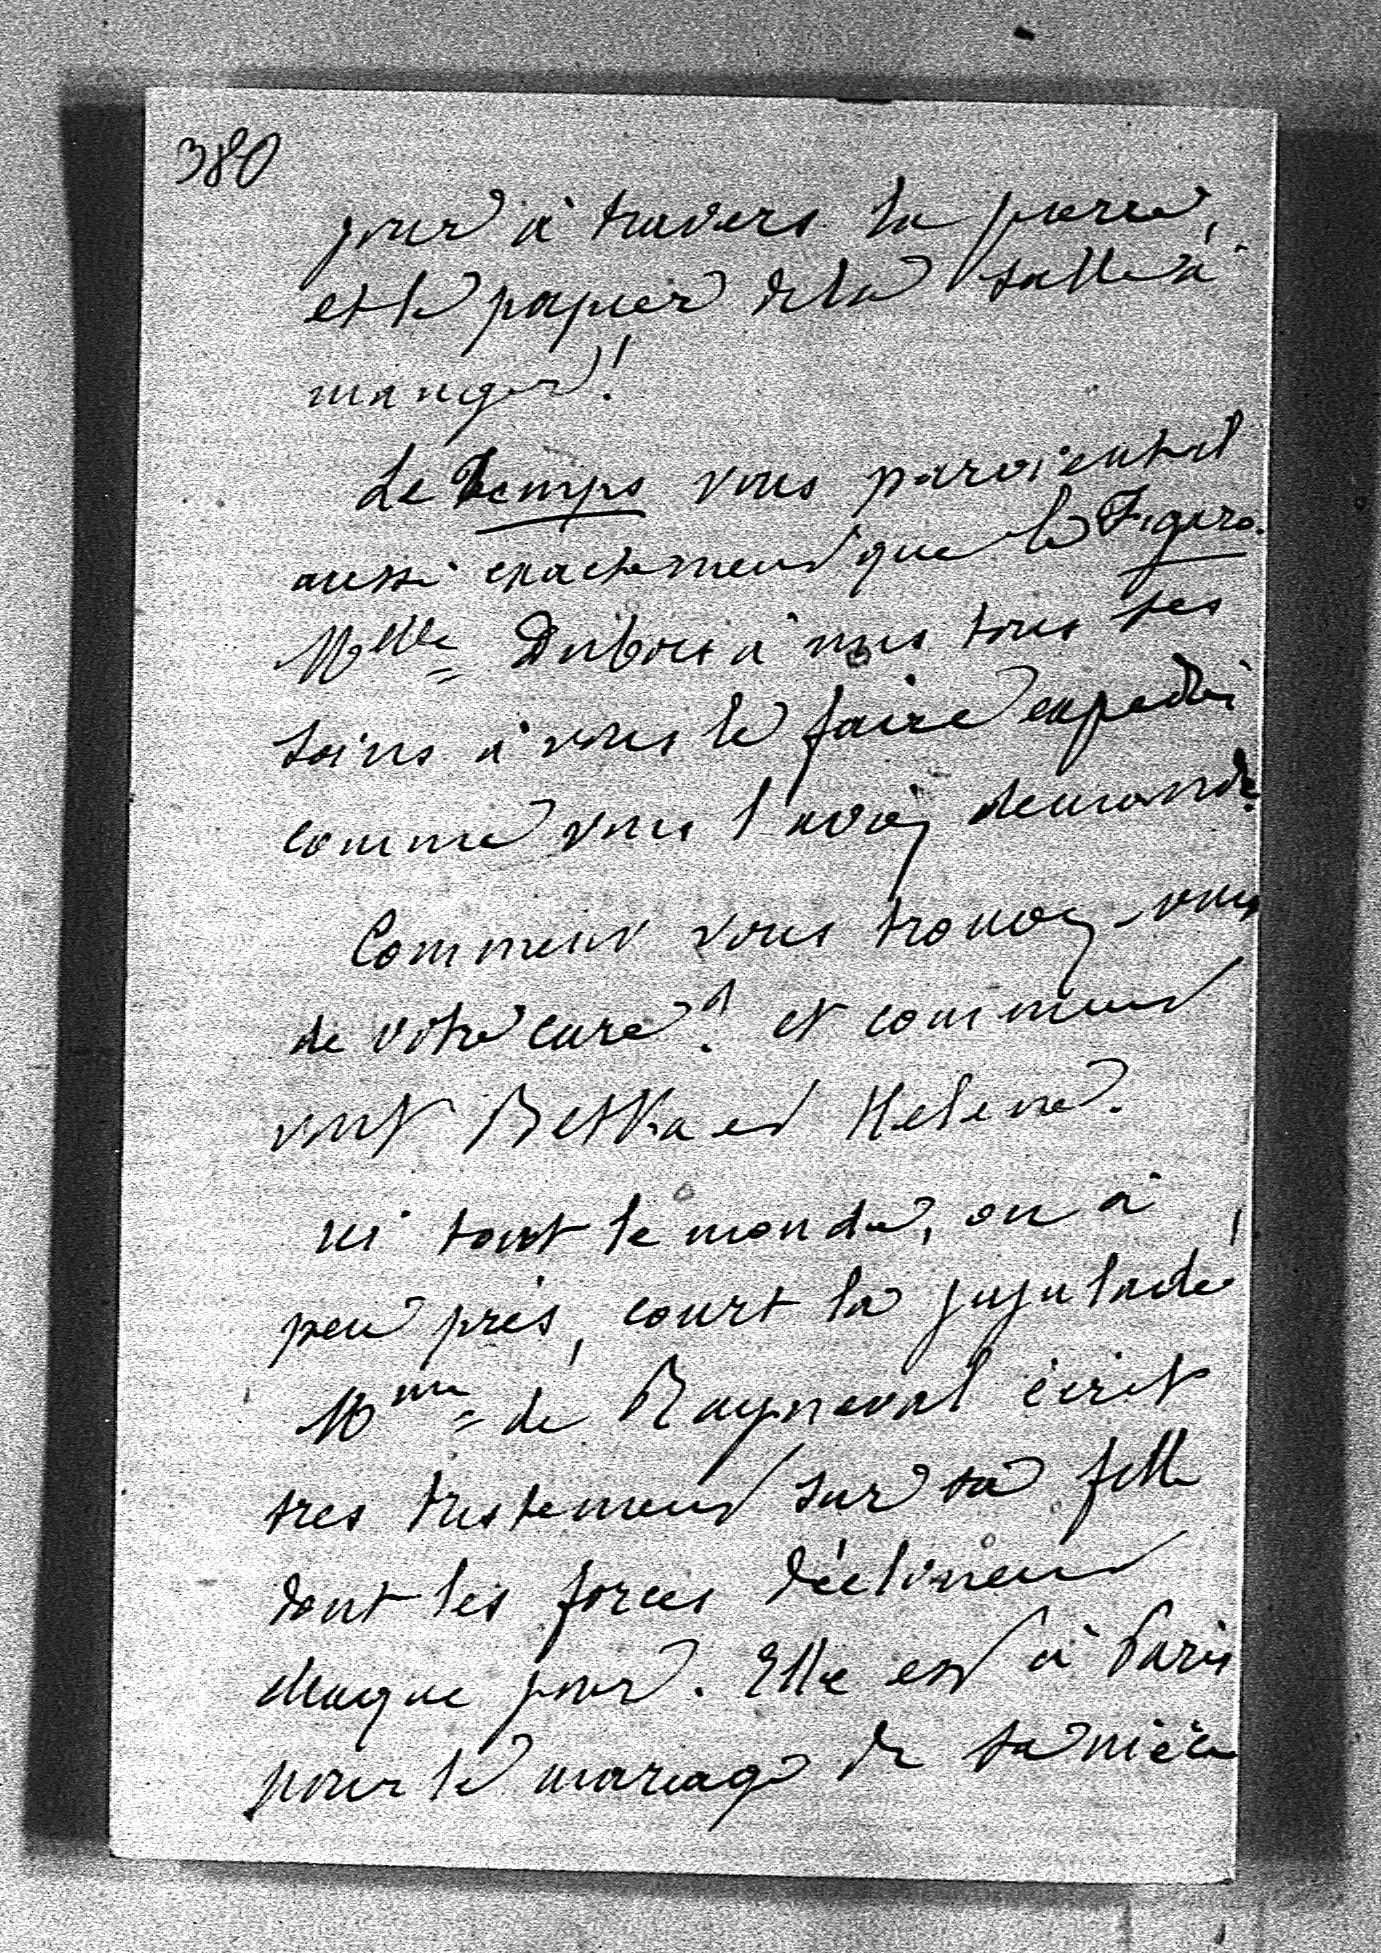 380
jour à travers la pierre,
et le papier de la salle à
manger!
Le Temps vous parvient-il
aussi exactement que le Figaro.
Melle Dubois a mis tous ses
soins à vous le faire expedier
comme vous l'aviez demandé.
Comment vous trouvez-vous
de votre cure? et comment
vont Betka et Helene.
ici tout le monde, ou à
peu près, court la
Mme de Rayneval écrit
tres tristement sur sa fille
dont les forces déclinent
chaque jour. Elle est à Paris
pour le mariage de sa nièce